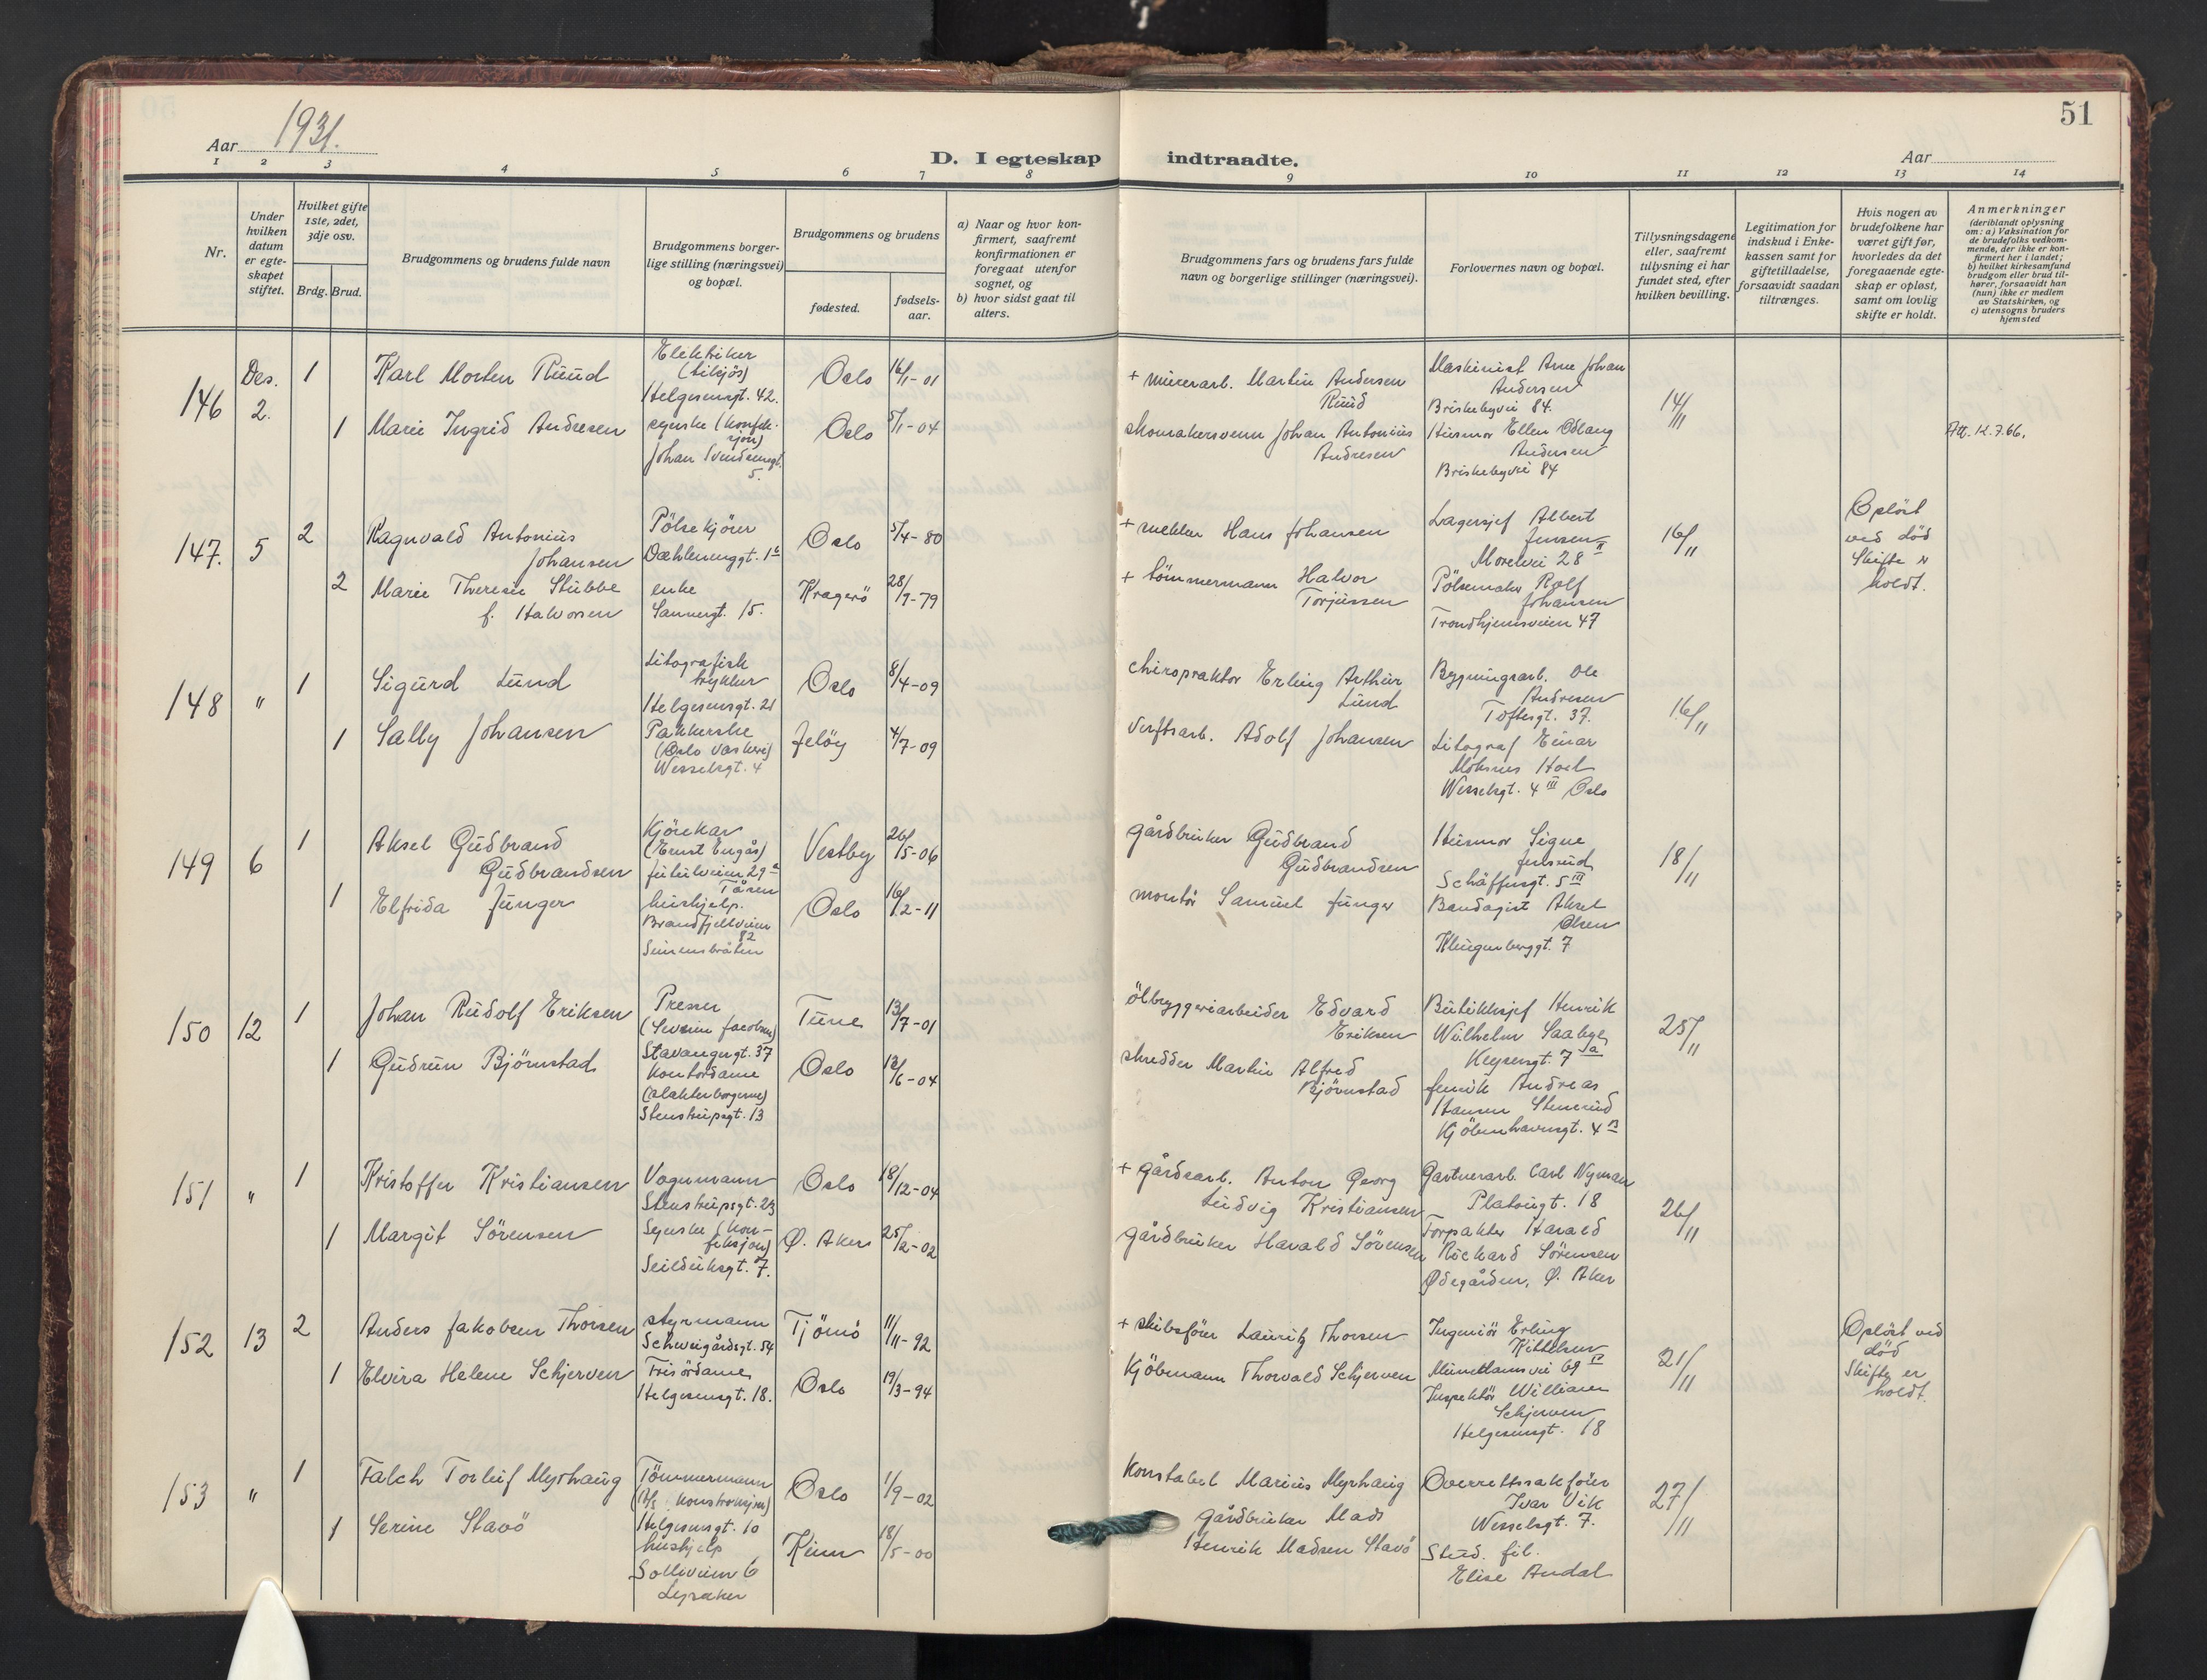 51
Aar 1931.
D. I egteskap indtraadte.
Aar
1 2 3 4 5 6 7 8 9 10 11 12 13 14
Nr.
Under
hvilken
datum
er egte-
skapet
stiftet.
Hvilket gifte
1ste, 2det,
3dje osv.
Brdg. Brud.
Brudgommens og brudens fulde navn
Brudgommens borger-
lige stilling (næringsvei)
og bopæl.
Brudgommens og brudens
fødested.
fødsels-
aar.
a) Naar og hvor kon-
firmert, saafremt
konfirmationen er
foregaat utenfor
sognet, og
b) hvor sidst gaat til
alters.
Brudgommens fars og brudens fars fulde
navn og borgerlige stillinger (næringsvei).
Forlovernes navn og bopæl.
Tillysningsdagene
eller, saafremt
tillysning ei har
fundet sted, efter
hvilken bevilling.
Legitimation for
indskud i Enke-
kassen samt for
giftetilladelse,
forsaavidt saadan
tiltrænges.
Hvis nogen av
brudefolkene har
været gift før,
hvorledes da det
foregaaende egte-
skap er opløst,
samt om lovlig
skifte er holdt.
Anmerkninger
(deriblandt oplysning
om: a) Vaksination for
de brudefolks vedkom-
mende, der ikke er kon-
firmert her i landet;
b) hvilket kirkesamfund
brudgom eller brud til-
hører, forsaavidt han
(hun) ikke er medlem
av Statskirken, og
c) utensogns bruders
hjemsted
146
Des.
2.
1
Karl Morten Ruud
Elektriker
Helgesensgt. 42.
Oslo
16/1-01
+ murerarb. Martin Andersen
Ruud
Maskinist Arne Johan
Andersen
Briskebyvei 84.
14/11
1
Marie Ingrid Andresen
syerske (konfek-
sjon)
Johan Svendsensgt.
5.
Oslo
5/1-04
skomakersvenn Johan Antonius
Andresen
Husmor Ellen Odlaug
Andersen
Briskebyvei 84
Att. 12.7.66.
147.
5
2
Ragnvald Antonius
Johansen
Pölsekjører
Dæhlenenggt. 1b
Oslo
5/4-80
+ snekker Hans Johansen
Lagersjef Albert
Jensen
Morelvei 28 II
16/11
Opløst
ved död
Skifte er
holdt.
2
Marie Therese Stubbe
f. Halvorsen
enke
Sannergt. 15.
Kragerö
28/7-79
+ tömmermann Halvor
Torjussen
Pölsemaker Rolf
Johansen
Trondhjemsveien 47
148
"
1
Sigurd Lund
Litografisk
trykker
Helgesensgt. 21
Oslo
8/4-09
chiropraktor Erling Arthur
Lund
Bygningsarb. Ole
Andresen
Toftesgt. 37.
16/11
1
Sally Johansen
Pakkerske
(Oslo Vaskeri)
Wesselsgt. 4
Jelöy
4/7-09
Verftsarb. Adolf Johansen
Litograf Einar
Moksnes Hoel
Wesselsgt. 4 III Oslo
149
6
1
Aksel Gudbrand
Gudbrandsen
Kjörekar
(Ernst Engås)
Tåsen
Vestby
26/5-06
gårdbruker Gudbrand
Gudbrandsen
Husmor Signe
Julsrud
Schäffersgt. 5 III
18/11
1
Elfrida Junger
hushjelp.
Brandfjellveien
82
Simensbråten
Oslo
16/12-11
montör Samuel Junger
Bandagist Aksel
Olsen
Klingenberggt. 7
150
12
1
Johan Rudolf Eriksen
Presser
(Severin Jacobsen)
Stavangergt. 37
Tune
13/7-01
ölbryggeriarbeider Edvard
Eriksen
Butikksjef Henrik
Wilhelm Saabye,
Keysersgt. 7 a
25/11
1
Gudrun Björnstad
Kontordame
(Slakterborgerne)
Stenstrupsgt. 13
Oslo
12/6-04
skredder Martin Alfred
Björnstad
Fenrik Andreas
Hansen Stenerud
Kjöbenhavnsgt. 4 B
151
"
1
Kristoffer Kristiansen
Vognmann
Stenstrupsgt. 23
Oslo
18/12-04
+ gårdsarb. Anton Georg
Ludvig Kristiansen
Gartnerarb. Carl Nyman
Platousgt. 18
26/11
1
Margit Sörensen
Syerske (kon-
feksjon)
Seilduksgt. 7.
Ø. Aker
25/2-02
gårdbruker Harald Sörensen
Forpakter Harald
Rickard Sörensen
Ødegården, Ø. Aker
152
13
2
Anders Jakobsen Thorsen
styrmann
Schweigårdsgt. 54
Tjömö
11/11-92
+ skibsförer Lauritz Thorsen
Ingeniör Erling
Kittelsen
Munkdamsvei 69 IV
21/11
Opløst ved
död
Skifte er
holdt.
1
Elvira Helene Schjerven
Frisördame
Helgesensgt. 18.
Oslo
19/3-94
Kjöbmann Thorvald Schjerven
Inspektör William
Schjerven
Helgesensgt. 18
153
"
1
Falch Torleif Myrhaug
Tömmermann
(A/S Konstruksjon)
Helgesensgt. 10
Oslo
1/9-02
Konstabel Marius Myrhaug
Overrettssakförer
Ivar Vik
Wesselsgt. 7.
27/11
1
Serine Stavö
hushjelp
Sollveien 6
Lysaker
Kinn
18/5-00
gårdbruker Mads
Henrik Madsen Stavö
Stud. fil.
Elise Andal